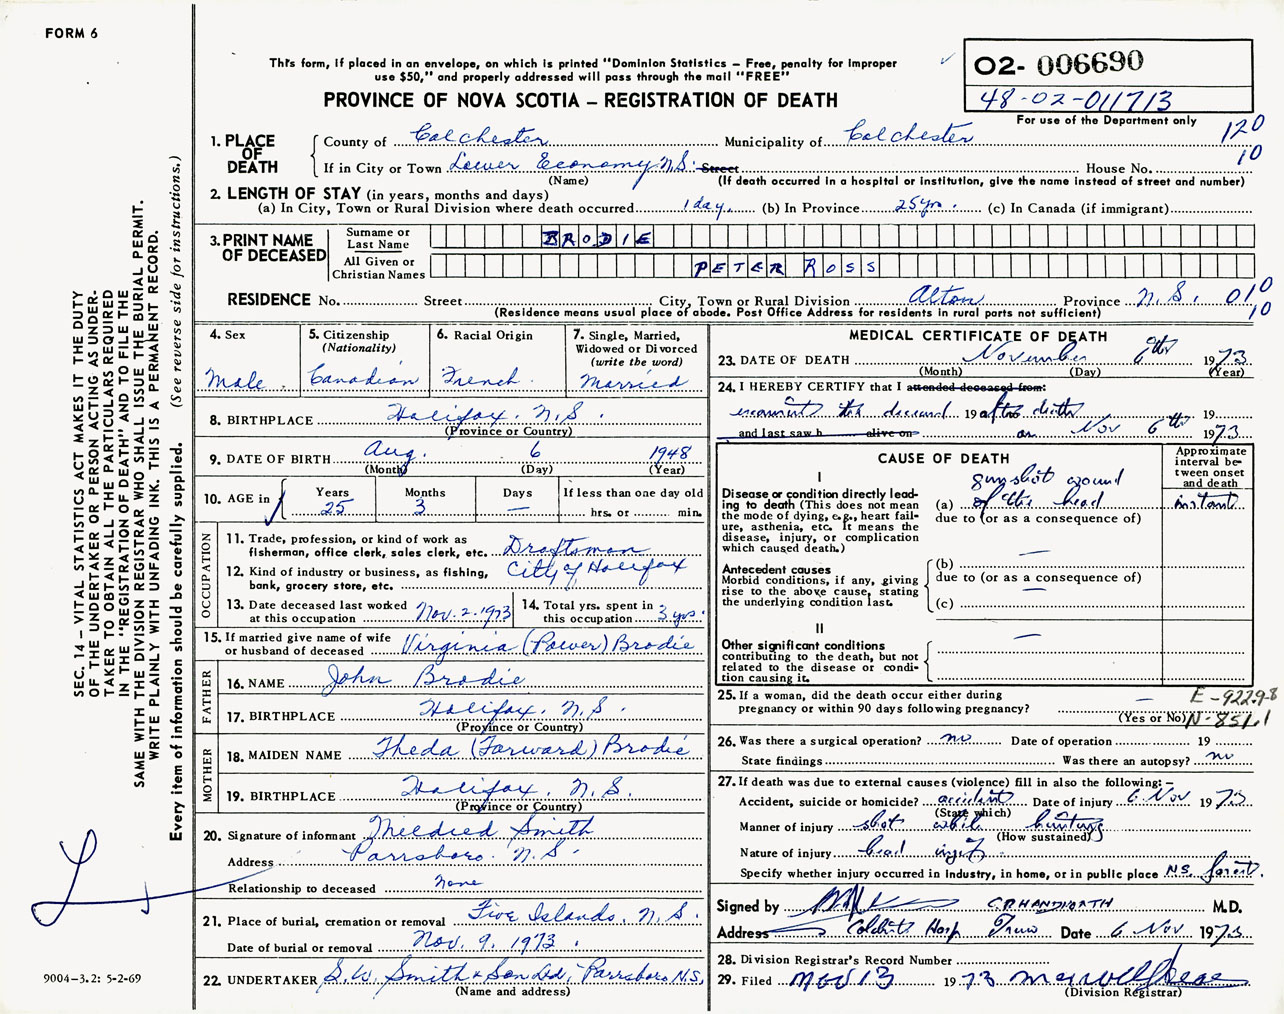 FORM 6
This form, if placed in an envelope, on which is printed "Dominion Statistics – Free, penalty for improper
use $50," and properly addressed will pass through the mail "FREE"
PROVINCE OF NOVA SCOTIA – REGISTRATION OF DEATH
02- 006690
48-02-011713
For use of the Department only
120
10
1. PLACE OF DEATH
County of Colchester Municipality of Colchester
If in City or Town Lower Economy N.S. Street House No.
(Name) (If death occurred in a hospital or institution, give the name instead of street and number)
2. LENGTH OF STAY (in years, months and days)
(a) In City, Town or Rural Division where death occurred 1 day. (b) In Province 25 yrs. (c) In Canada (if immigrant)
3. PRINT NAME OF DECEASED
Surname or Last Name BRODIE
All Given or Christian Names PETER ROSS
RESIDENCE No. Street City, Town or Rural Division Alton Province N.S. 010
10
(Residence means usual place of abode. Post Office Address for residents in rural parts not sufficient)
4. Sex
Male
5. Citizenship
(Nationality)
Canadian
6. Racial Origin
French
7. Single, Married,
Widowed or Divorced
(write the word)
Married
8. BIRTHPLACE Halifax. N.S.
(Province or Country)
9. DATE OF BIRTH Aug. 6 1948
(Month) (Day) (Year)
10. AGE in
Years 25
Months 3
Days —
If less than one day old
hrs. or min.
OCCUPATION
11. Trade, profession, or kind of work as
fisherman, office clerk, sales clerk, etc. Draftsman
12. Kind of industry or business, as fishing,
bank, grocery store, etc. City of Halifax
13. Date deceased last worked
at this occupation Nov. 2. 1973
14. Total yrs. spent in
this occupation 3 yrs.
15. If married give name of wife
or husband of deceased Virginia (Power) Brodie
FATHER
16. NAME John Brodie
17. BIRTHPLACE Halifax. N.S.
(Province or Country)
MOTHER
18. MAIDEN NAME Theda (Forward) Brodie
19. BIRTHPLACE Halifax. N.S.
(Province or Country)
20. Signature of informant Mildred Smith
Address Parrsboro. N.S.
Relationship to deceased None
21. Place of burial, cremation or removal Five Islands. N.S.
Date of burial or removal Nov. 9. 1973.
22. UNDERTAKER S.W. Smith & Son Ltd, Parrsboro N.S.
(Name and address)
MEDICAL CERTIFICATE OF DEATH
23. DATE OF DEATH November 6th 1973
(Month) (Day) (Year)
24. I HEREBY CERTIFY that I attended deceased from:
examined the deceased 19 after death 19
and last saw h alive on on Nov 6th 1973
CAUSE OF DEATH
Approximate
interval be-
tween onset
and death
I
Disease or condition directly lead-
ing to death (This does not mean
the mode of dying, e.g., heart fail-
ure, asthenia, etc. It means the
disease, injury, or complication
which caused death.)
gunshot wound
(a) of the head
instant
due to (or as a consequence of)
—
Antecedent causes
Morbid conditions, if any, giving
rise to the above cause, stating
the underlying condition last.
(b)
due to (or as a consequence of)
—
(c)
II
Other significant conditions
contributing to the death, but not
related to the disease or condi-
tion causing it.
—
25. If a woman, did the death occur either during
pregnancy or within 90 days following pregnancy? —
(Yes or No)
E-922.9-8
N-851.1
26. Was there a surgical operation? no Date of operation 19
State findings Was there an autopsy? no
27. If death was due to external causes (violence) fill in also the following:–
Accident, suicide or homicide? accident Date of injury 6 Nov 1973
(State which)
Manner of injury shot while hunting
(How sustained)
Nature of injury head injury
Specify whether injury occurred in industry, in home, or in public place N.S. forest.
Signed by C.R. HANDFORTH M.D.
Address Colchester Hosp Truro Date 6 Nov 1973
28. Division Registrar's Record Number
29. Filed Nov 13 1973
(Division Registrar)
SEC. 14 – VITAL STATISTICS ACT MAKES IT THE DUTY
OF THE UNDERTAKER OR PERSON ACTING AS UNDER-
TAKER TO OBTAIN ALL THE PARTICULARS REQUIRED
IN THE "REGISTRATION OF DEATH" AND TO FILE THE
SAME WITH THE DIVISION REGISTRAR WHO SHALL ISSUE THE BURIAL PERMIT.
WRITE PLAINLY WITH UNFADING INK. THIS IS A PERMANENT RECORD.
Every item of information should be carefully supplied. (See reverse side for instructions.)
9004–3.2: 5-2-69